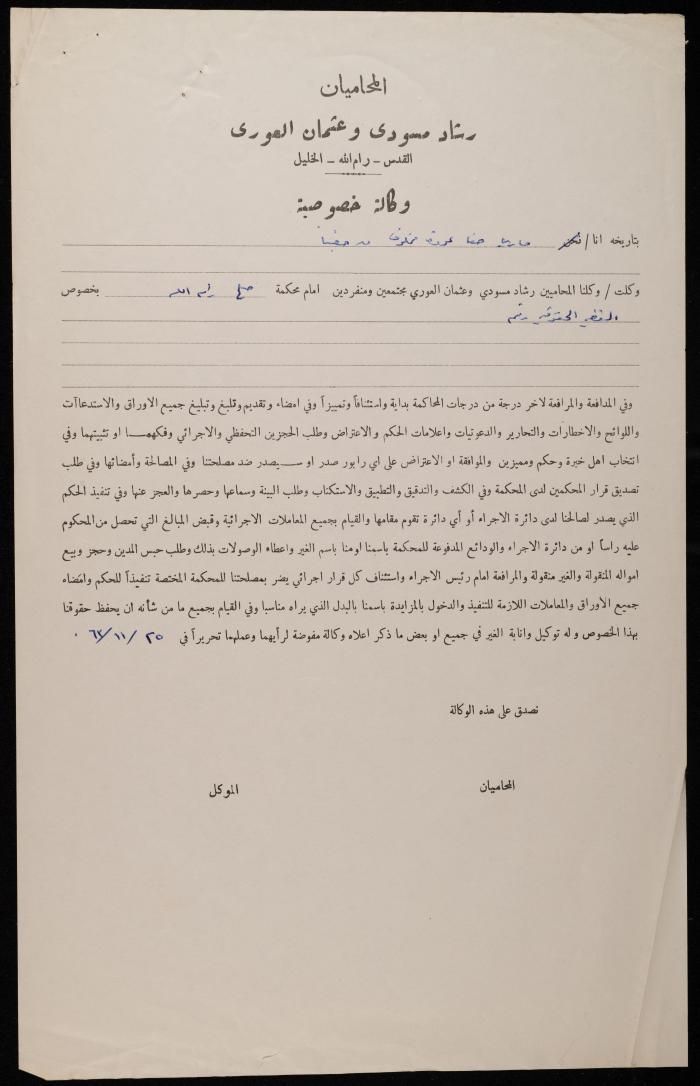 المحاميان
رشاد مسودي وعثمان العوري
القدس - رام الله - الخليل
وكالة خصوصية
بتاريخه انا / نحن حنا عودة من جفنا
وكلت / وكلنا المحاميين رشاد مسودي وعثمان العوري مجتمعين ومنفردين امام محكمة صلح رام الله بخصوص
الحقوقية رقم
وفي المدافعة والمرافعة لاخر درجة من درجات المحاكمة بداية واستئنافاً وتمييزاً وفي امضاء وتقديم وتلبغ وتبليغ جميع الاوراق والاستدعاآت
واللوائح والاخطارات والتحارير والدعوتيات واعلامات الحكم والاعتراض وطلب الحجزين التحفظي والاجرائي وفكهما او تثبيتهما وفي
انتخاب اهل خبرة وحكم ومميزين والموافقة او الاعتراض على اي رابور صدر او سيصدر ضد مصلحتنا وفي المصالحة وأمضائها وفي طلب
تصديق قرار المحكمين لدى المحكمة وفي الكشف والتدقيق والتطبيق والاستكتاب وطلب البينة وسماعها وحصرها والعجز عنها وفي تنفيذ الحكم
الذي يصدر لصالحنا لدى دائرة الاجراء أو أي دائرة تقوم مقامها والقيام بجميع المعاملات الاجرائية وقبض المبالغ التي تحصل من المحكوم
عليه راساً او من دائرة الاجراء والودائع المدفوعة للمحكمة باسمنا اومنا باسم الغير واعطاء الوصولات بذلك وطلب حبس المدين وحجز وبيع
امواله المنقولة والغير منقولة والمرافعة امام رئيس الاجراء واستئناف كل قرار اجرائي يضر بمصلحتنا للمحكمة المختصة تنفيذاً للحكم وامضاء
جميع الأوراق والمعاملات اللازمة للتنفيذ والدخول بالمزايدة باسمنا بالبدل الذي يراه مناسبا وفي القيام بجميع ما من شأنه ان يحفظ حقوقنا
بهذا الخصوص وله توكيل وانابة الغير في جميع او بعض ما ذكر اعلاه وكالة مفوضة لرأيهما وعملهما تحريراً في ٢٥ / ١١ / ٦٢
نصدق على هذه الوكالة
المحاميان
الموكل